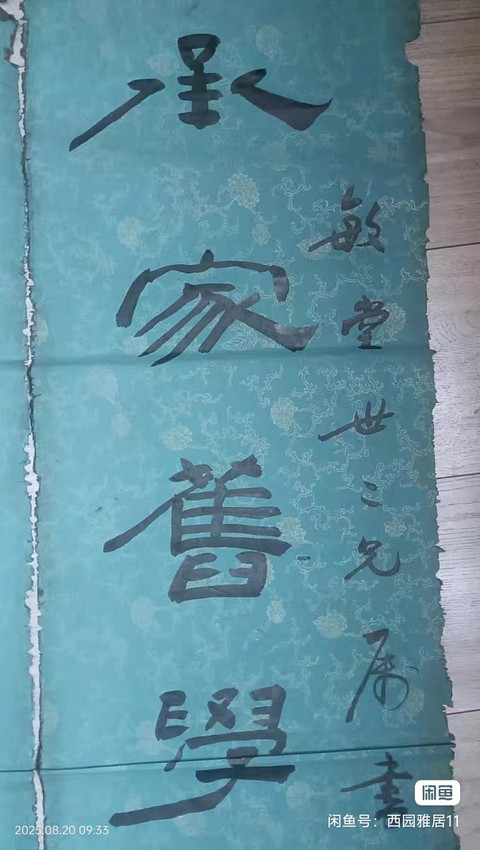 敏堂世二兄属书
承家舊學
闲鱼
闲鱼号：西园雅居11
2025.08.20 09:33